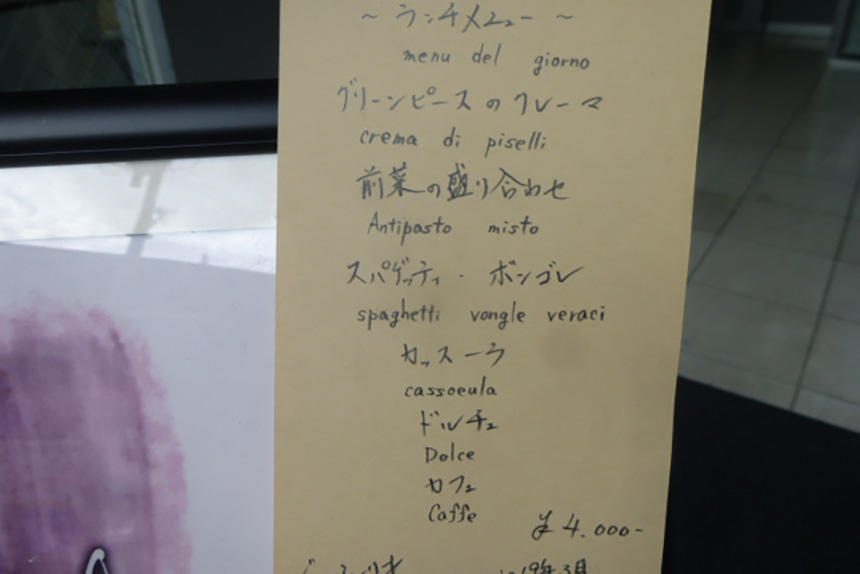 ～ランチメニュー～
menu del giorno
グリーンピースのクレーマ
crema di piselli
前菜の盛り合わせ
Antipasto misto
スパゲッティ・ボンゴレ
spaghetti vongle veraci
カッスーラ
cassoeula
ドルチェ
Dolce
カフェ
Caffe
¥4.000-
19年3月